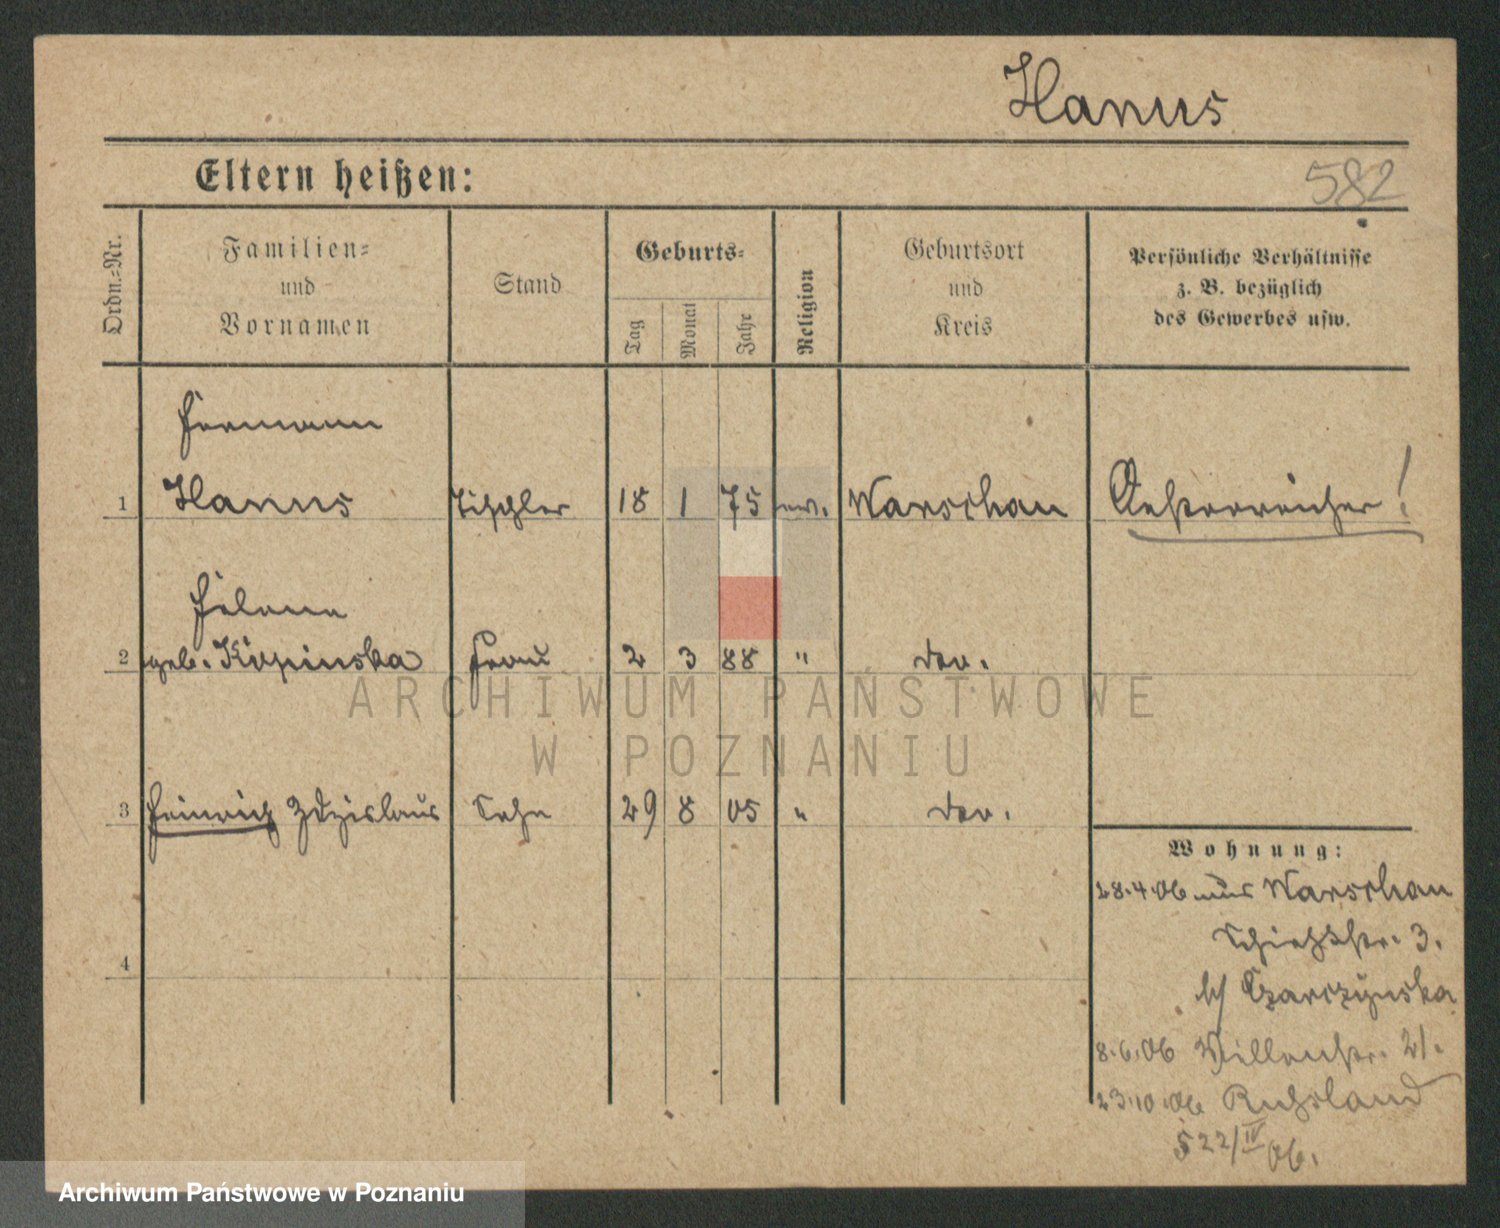 Hanus
Eltern heißen:
582
Ordn.=Nr.
Familien=
und
Vornamen
Stand
Geburts=
Tag
Monat
Jahr
Religion
Geburtsort
und
Kreis
Persönliche Verhältnisse
z. B. bezüglich
des Gewerbes usw.
Hermann
1 Hanus Tischler 18 1 75 ev. Warschau Oesterreicher!
Helene
2 geb. Kopinska Frau 2 3 88 " do.
3 Heinrich Zdzislaus Sohn 29 8 05 " do.
4
Wohnung:
28.4.06 aus Warschau
Schießstr. 3.
b/ Czarczynska
8.6.06 Willenstr. 21.
23.10.06 Rußland
522/IV 06.
ARCHIWUM PAŃSTWOWE
W POZNANIU
Archiwum Państwowe w Poznaniu